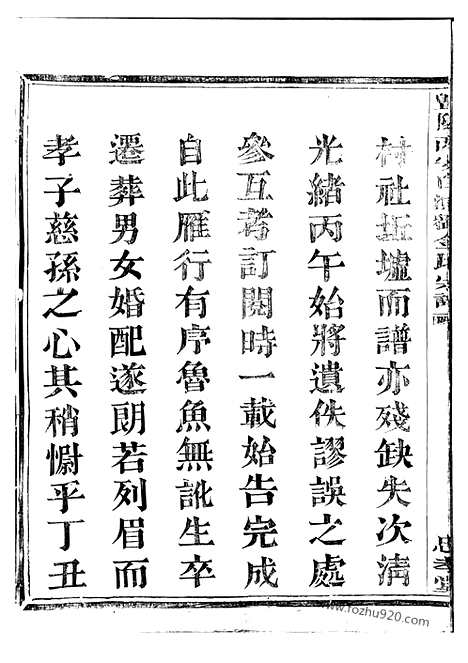 宗譜
忠孝堂
村社坵墟而譜亦殘缺失次淸
光緒丙午始將遺佚謬誤之處
參互考訂閱時一載始告完成
自此雁行有序魯魚無訛生卒
遷葬男女婚配遂朗若列眉而
孝子慈孫之心其稍慰乎丁丑
www.fozhu920.com